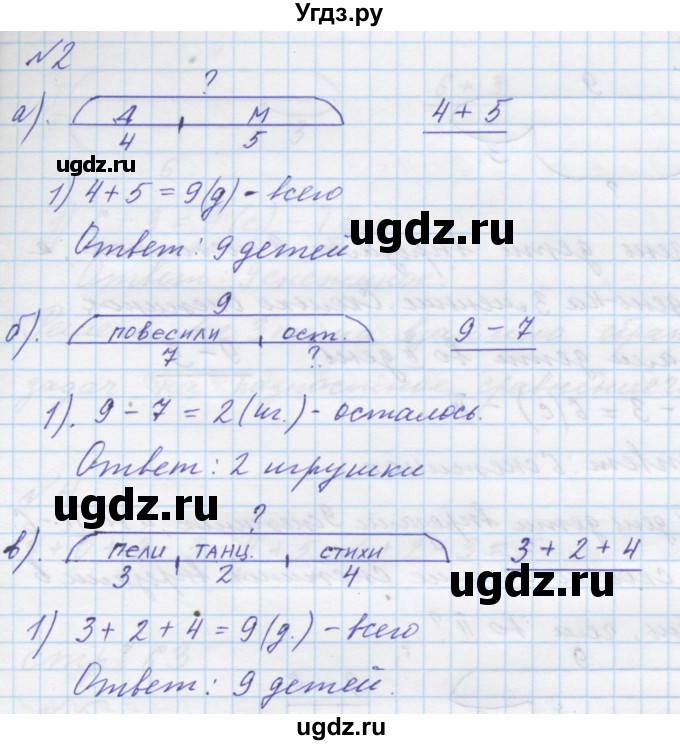 Угдз.ру
№2
?
а). Д М 4 + 5
4 5
1) 4 + 5 = 9 (д) - всего
Ответ: 9 детей
9
б). повесили ост. 9 - 7
7 ?
1). 9 - 7 = 2 (иг.) - осталось.
Ответ: 2 игрушки
?
в). пели танц. стихи 3 + 2 + 4
3 2 4
1) 3 + 2 + 4 = 9 (д.) - всего
Ответ: 9 детей.
ugdz.ru
ugdz.ru
ugdz.ru
ugdz.ru
ugdz.ru
ugdz.ru
ugdz.ru
ugdz.ru